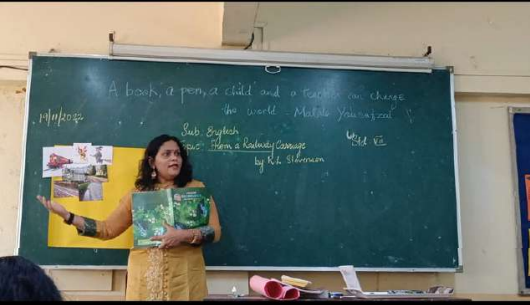 A book, a pen, a child and a teacher can change
the world. Malala Yousafzai
19/11/2022
Sub. English
Std VII
From a Railway Carriage
by R.L. Stevenson